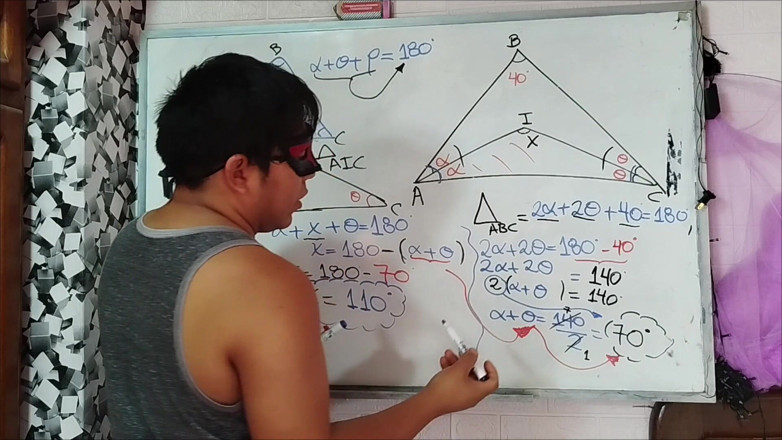 B
α+θ+ρ=180°
C
△AIC
θ
C
α+x+θ=180°
x=180-(α+θ)
=180-70
=110°
B
40°
I
x
α
α
θ
θ
A
C
△ABC=2α+2θ+40=180°
2α+2θ=180°-40°
2α+2θ =140
2(α+θ)=140
α+θ=140/2=70°
1